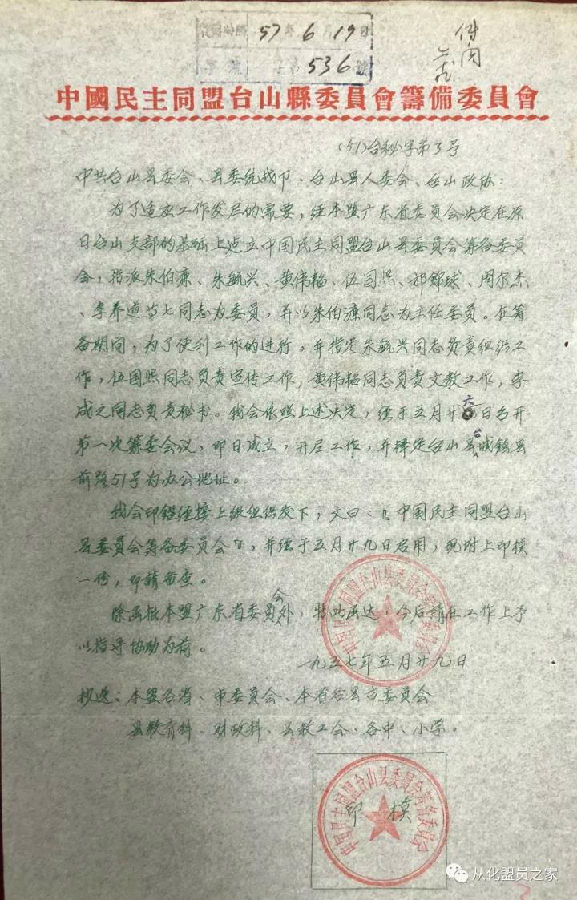 收文時間 57年6月19日
字號 字第536號
传阅
中國民主同盟台山縣委員會籌備委員會
(57)台秘字第3号
中共台山县委会、县委统战部、台山县人委会、台山政协:
为了适应工作发展的需要,经本盟广东省委员会决定在原
日台山支部的基础上成立中国民主同盟台山县委员会筹备委员
会,指派朱伯廉、朱毓兴、黄伟韬、伍国照、邝郁球、周尔杰
、李养道等七同志为委员,并以朱伯廉同志为主任委员。在筹
备期间,为了便利工作的进行,并指定朱毓兴同志负责组织工
作,伍国照同志负责宣传工作,黄伟韬同志负责文教工作,
成之同志负责秘书。我会依照上述决定,经于五月十六日召开
第一次筹委会议,即日成立,开展工作,并择定台山县城镇县
前路51号为办公地址。
我会印鉴经接上级组织发下,文曰:「中国民主同盟台山
县委员会筹备委员会」,并经于五月廿九日启用,现附上印模
一份,即请备查。
除函报本盟广东省委员会外,特此函达,今后请在工作上予
以指导协助为荷。
一九五七年五月廿九日
抄送:本盟各省、市委员会、本省各县市委员会
县教育科、财政科、县教工会、各中、小学。
中国民主同盟台山县委员会筹备委员会
中国民主同盟台山县委员会筹备委员会
印模
从化盟员之家